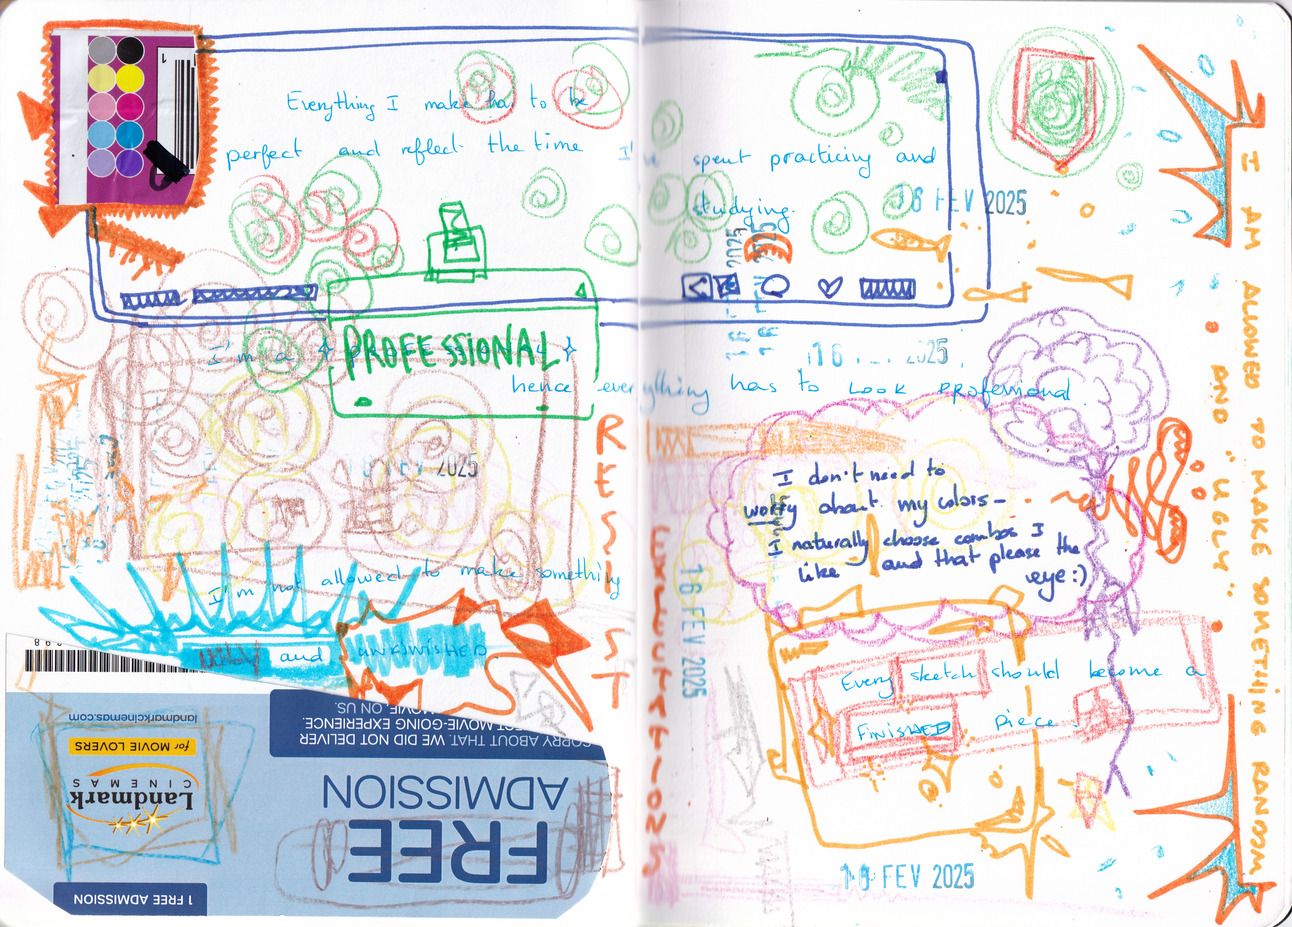 Everything I make has to be
perfect and reflect the time I've spent practicing and
studying.
16 FEV 2025
I'm a
PROFESSIONAL
hence everything has to LOOK professional.
16 FEV 2025
I'm not allowed to make something
and UNFINISHED
RESIST
2025
2025
I don't need to
worry about my colors -
I naturally choose combos I
like and that please the
eye :)
16 FEV 2025
Every sketch should become a
FINISHED piece
16 FEV 2025
I AM ALLOWED TO MAKE SOMETHING RANDOM
AND "UGLY"
landmarkcinemas.com
for MOVIE LOVERS
Landmark
CINEMAS
SORRY ABOUT THAT. WE DID NOT DELIVER
MOVIE-GOING EXPERIENCE.
MOVIE, ON US.
FREE
ADMISSION
1 FREE ADMISSION